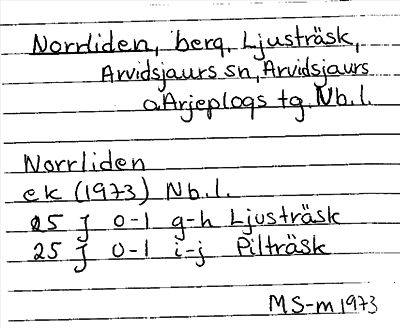 Norrliden, berg, Ljusträsk,
Arvidsjaurs sn, Arvidsjaurs
o Arjeplogs tg. Nb.l.
Norrliden
ek (1973) Nb.l.
25 J 0-1 g-h Ljusträsk
25 J 0-1 i-j Pilträsk
MS-m 1973